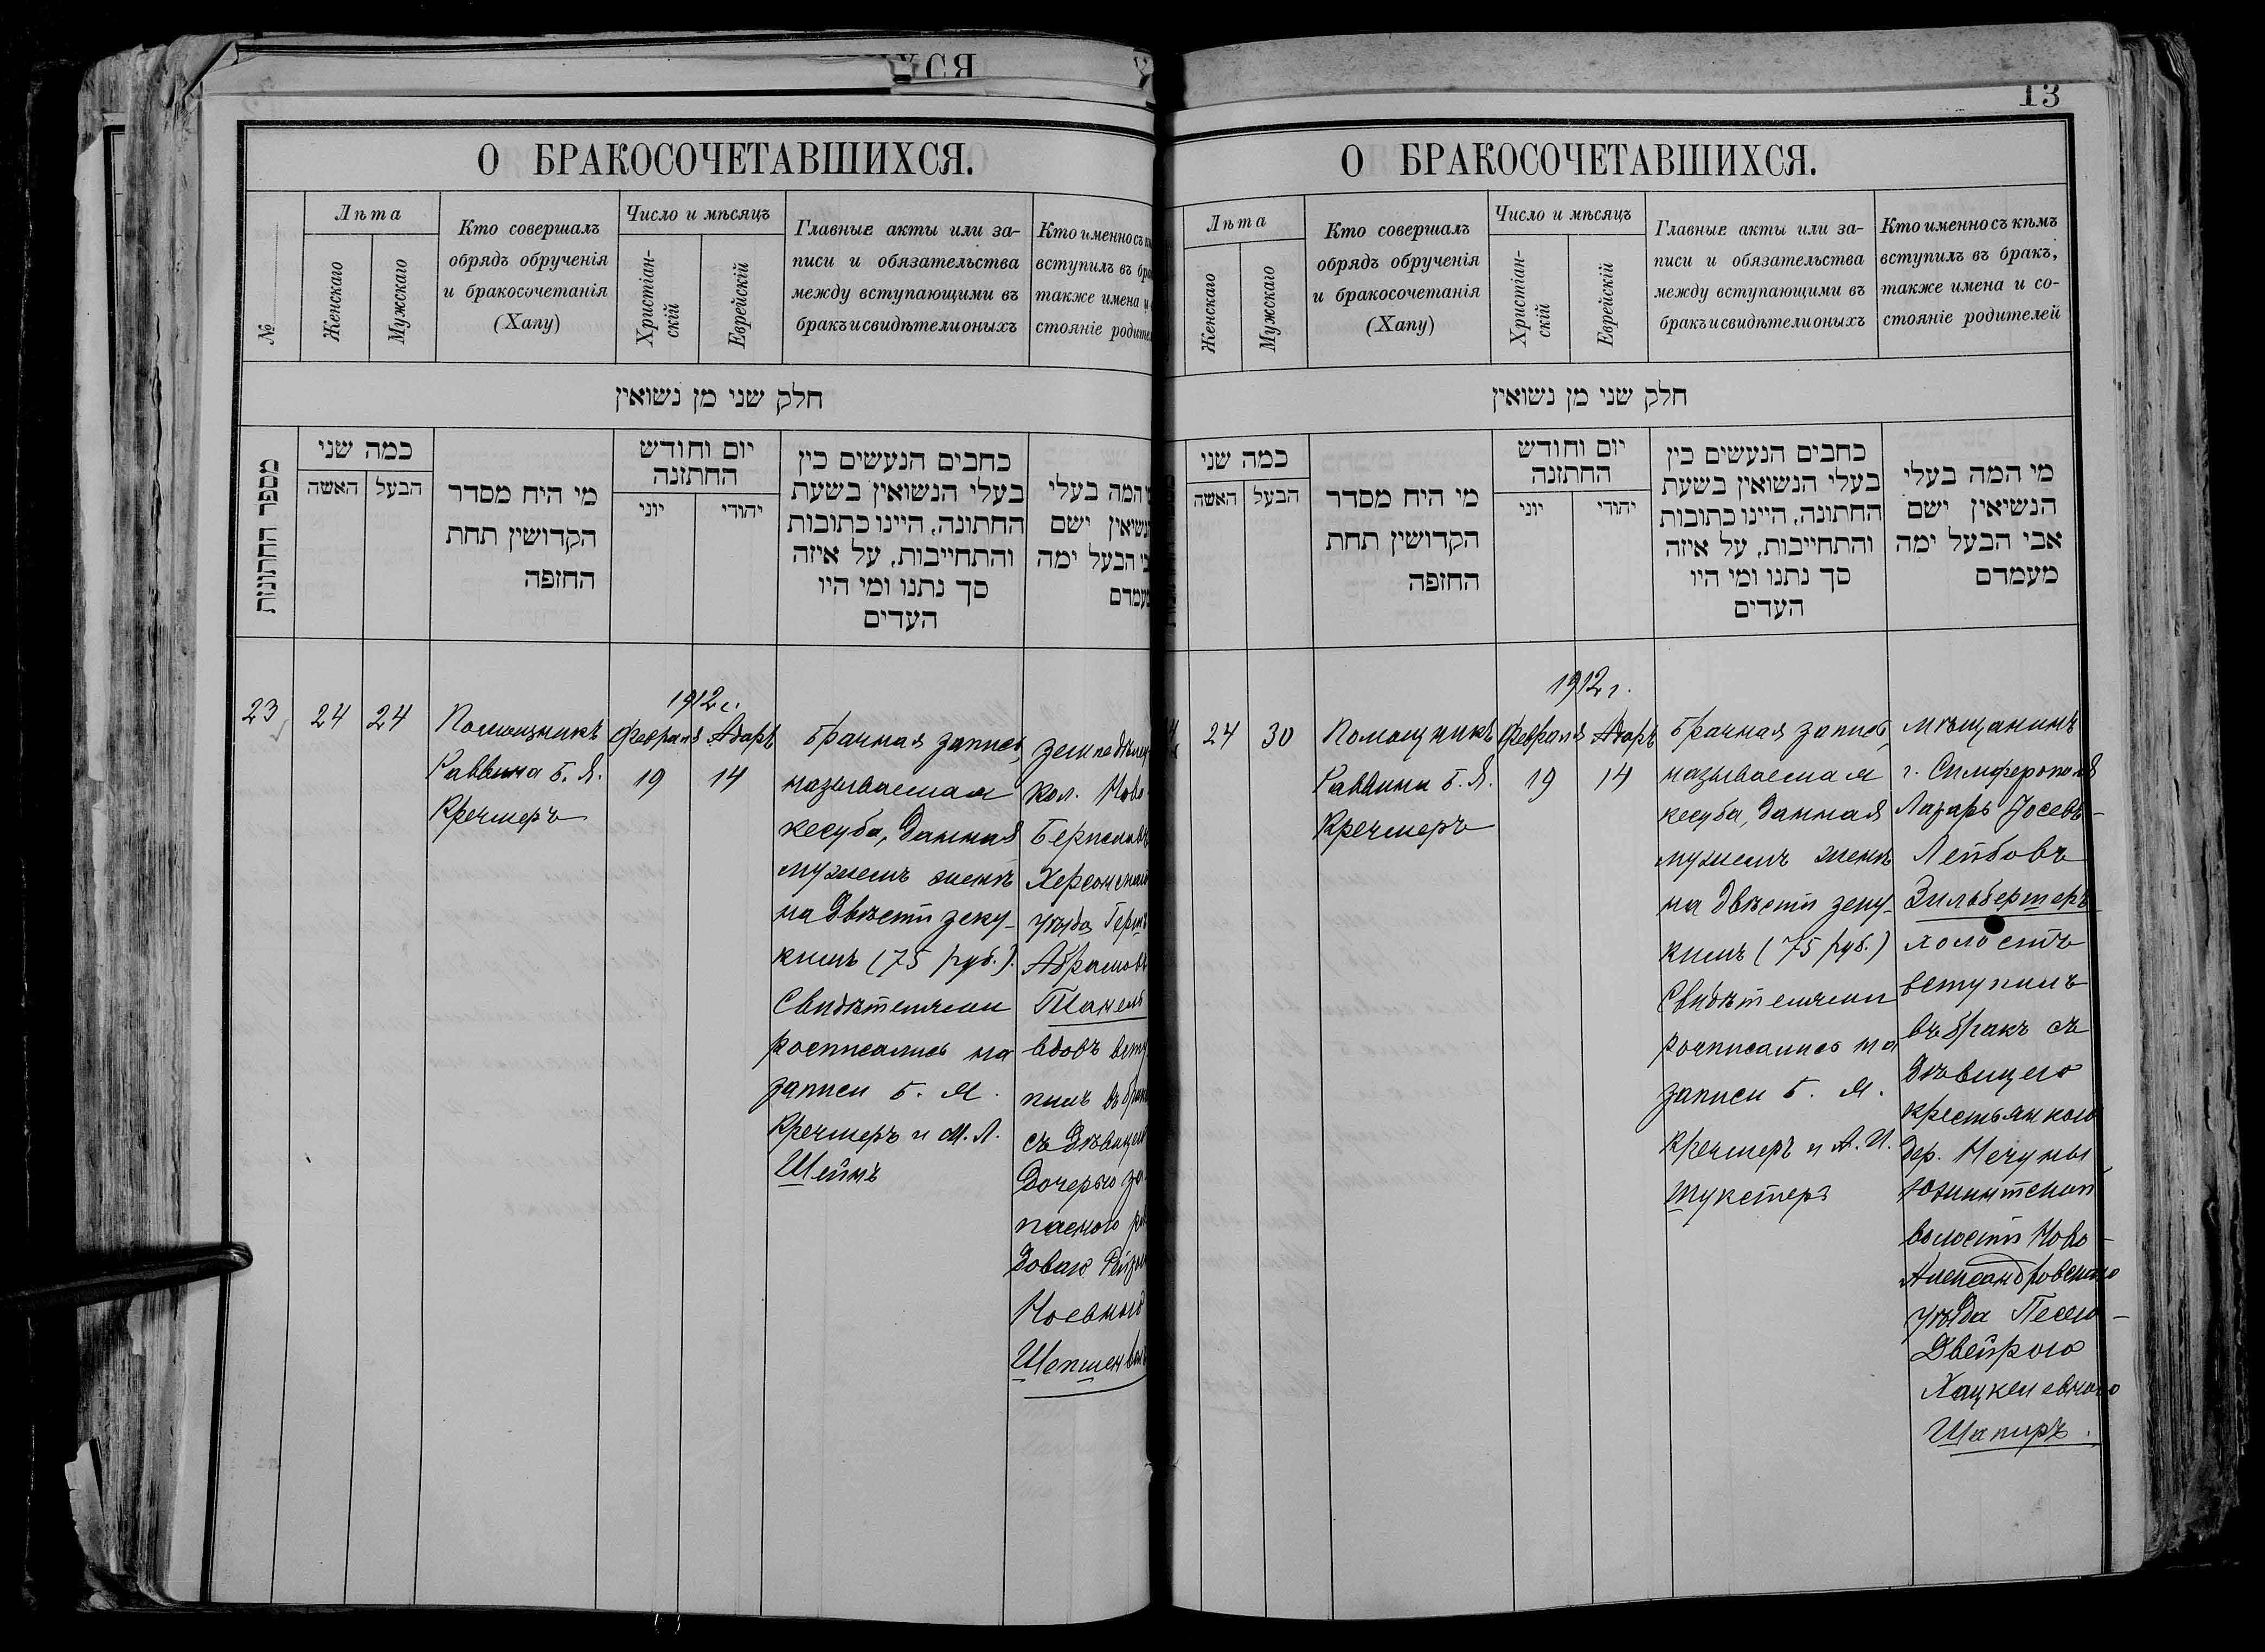 О БРАКОСОЧЕТАВШИХСЯ.
№
Лѣта
Женскаго
Мужскаго
Кто совершалъ
обрядъ обрученія
и бракосочетанія
(Хапу)
Число и мѣсяцъ
Христіан-
скій
Еврейскій
Главные акты или за-
писи и обязательства
между вступающими въ
бракъ и свидѣтели оныхъ
Кто именно съ
вступилъ въ
также имена
стояніе
חלק שני מן נשואין
מספר החתונות
כמה שני
האשה
הבעל
מי היח מסדר
הקדושין תחת
החופה
יום וחודש
החתונה
יוני
יהודי
כתבים הנעשים בין
בעלי הנשואין בשעת
החתונה, היינו כתובות
והתחייבות, על איזה
סך נתנו ומי היו
העדים
המה בעלי
ישם
הבעל ימה
23
24
24
Помощникъ
Раввина Б. Я.
Кречмеръ
1912 г.
Февраля
19
Адаръ
14
Брачная запись,
называемая
кесуба, данная
мужемъ женѣ
на двѣсти зеку-
кимъ (75 руб.).
Свидѣтелями
росписались на
записи Б. Я.
Кречмеръ и М. Л.
Шейнъ
кол. Ново-
уѣзда
Абрамовъ
вдовъ всту
пилъ въ
съ дѣвицею
дочерью за
паснаго
Ноевною
13
О БРАКОСОЧЕТАВШИХСЯ.
Лѣта
Женскаго
Мужскаго
Кто совершалъ
обрядъ обрученія
и бракосочетанія
(Хапу)
Число и мѣсяцъ
Христіан-
скій
Еврейскій
Главные акты или за-
писи и обязательства
между вступающими въ
бракъ и свидѣтели оныхъ
Кто именно съ кѣмъ
вступилъ въ бракъ,
также имена и со-
стояніе родителей
חלק שני מן נשואין
כמה שני
האשה
הבעל
מי היח מסדר
הקדושין תחת
החופה
יום וחודש
החתונה
יוני
יהודי
כתבים הנעשים בין
בעלי הנשואין בשעת
החתונה, היינו כתובות
והתחייבות, על איזה
סך נתנו ומי היו
העדים
מי המה בעלי
הנשיאין ישם
אבי הבעל ימה
מעמדם
24
30
Помощникъ
Раввина Б. Я.
Кречмеръ
1912 г.
Февраля
19
Адаръ
14
Брачная запись,
называемая
кесуба, данная
мужемъ женѣ
на двѣсти зеку-
кимъ (75 руб.)
Свидѣтелями
росписались на
записи Б. Я.
Кречмеръ и А. И.
Шукстеръ
Мѣщанинъ
г. Симферополя
Лазарь Іосевъ-
Лейбовъ
Зильбертеръ
холостъ
вступилъ
въ бракъ съ
дѣвицею
крестьянкою
дер. Нечуны
волости Ново-
Александровскаго
уѣзда Песею-
Двейрою
Хацкелевною
Шапиръ.